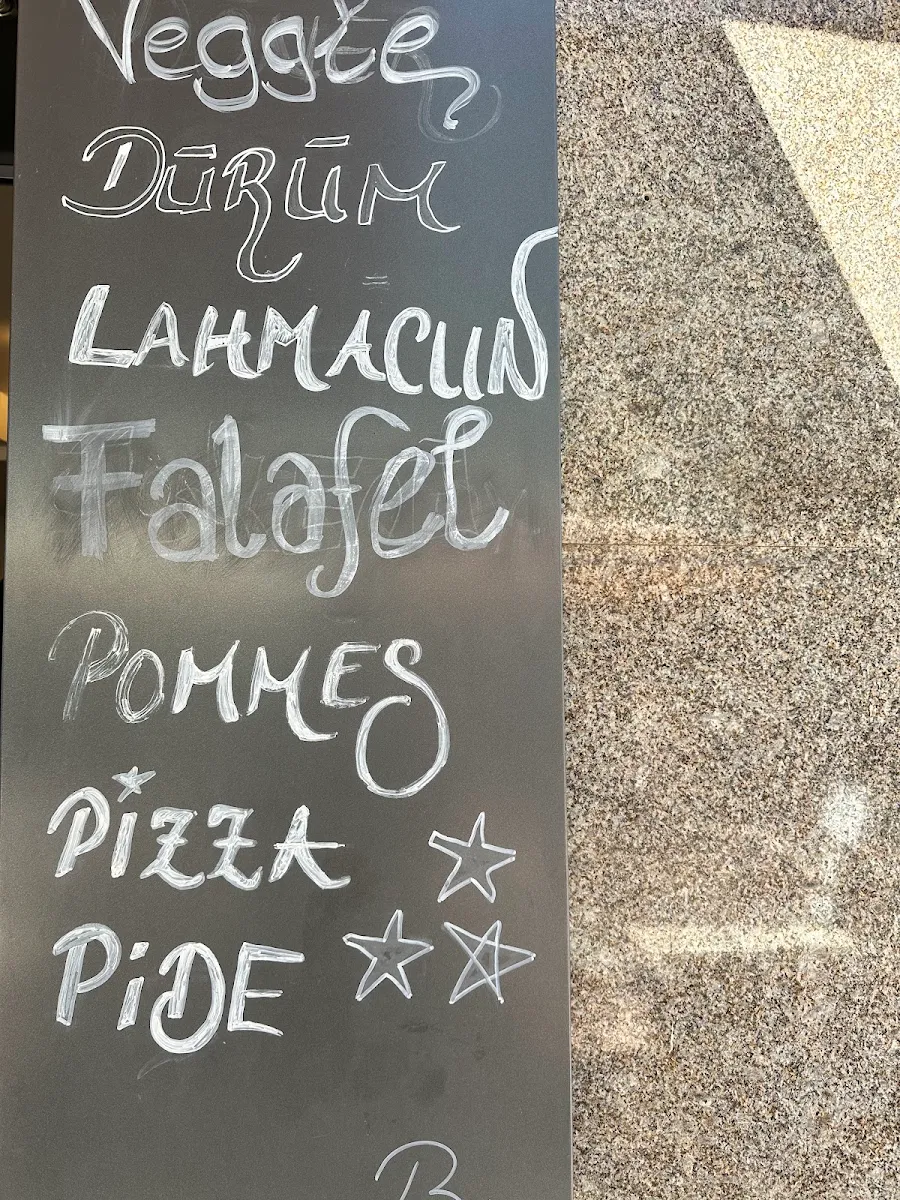 Veggie
DÜRÜM
LAHMACUN
Falafel
POMMES
PiZZA
PiDE
B